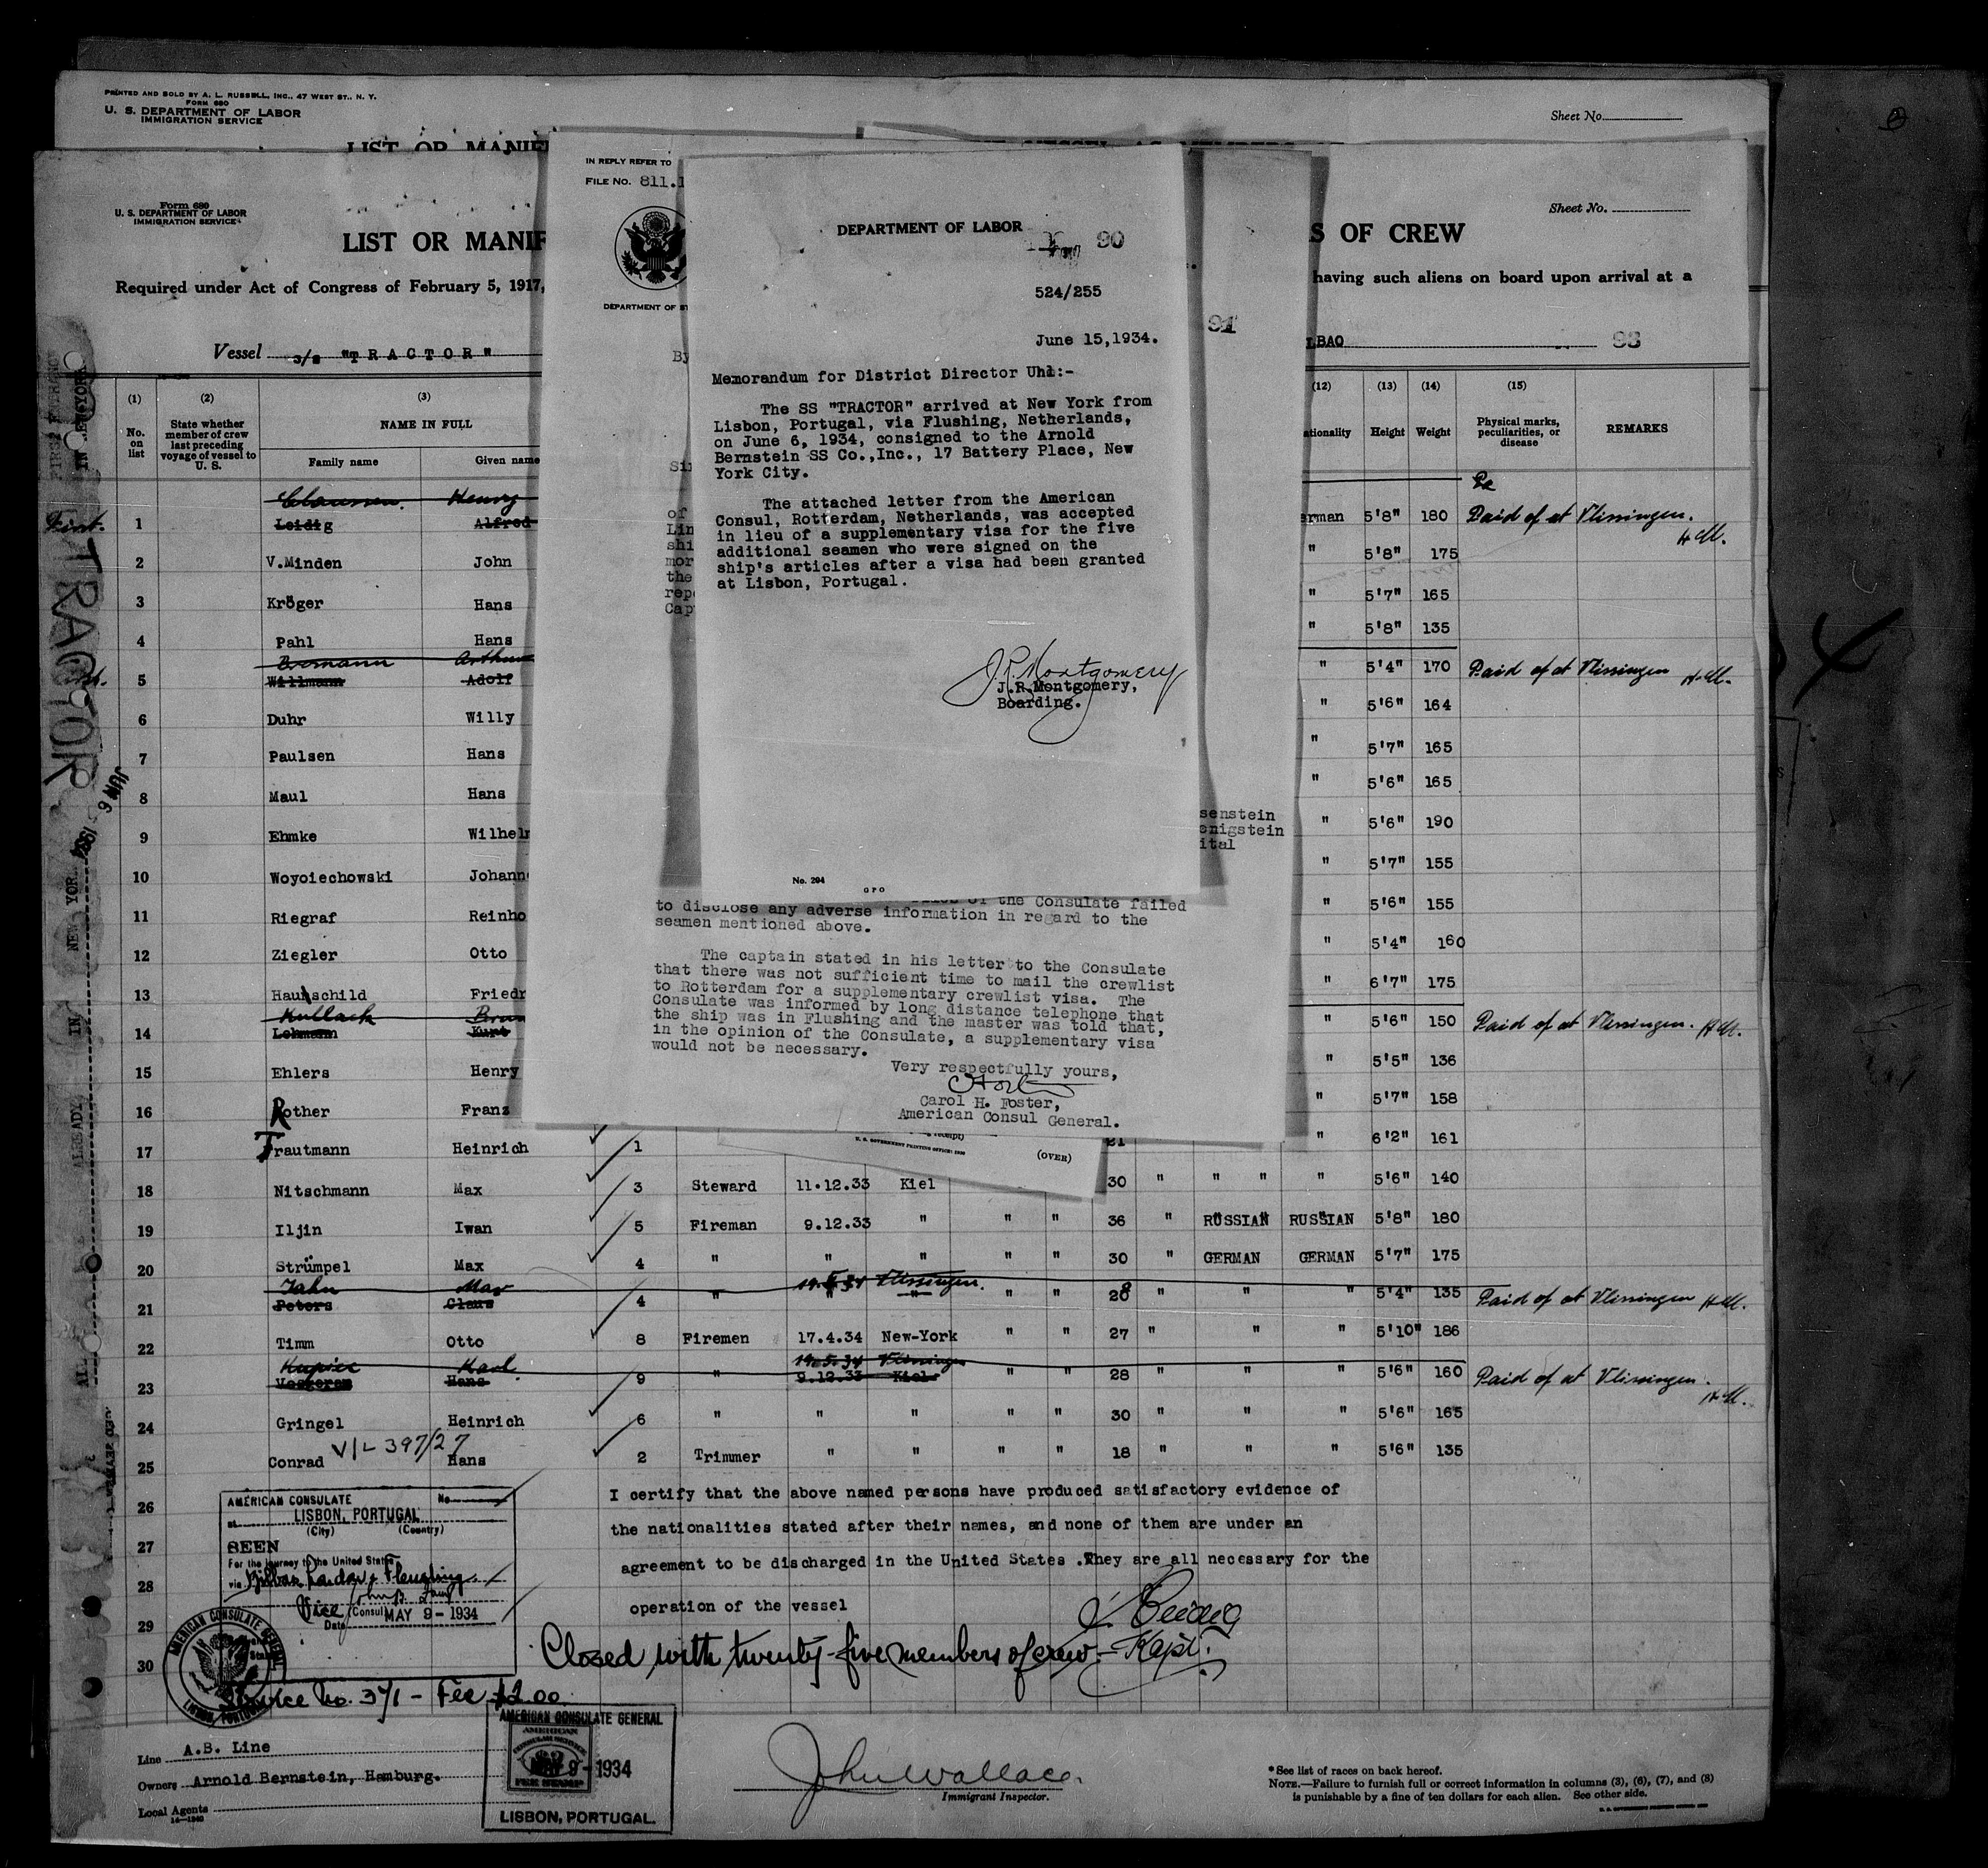 PRINTED AND SOLD BY A. L. RUSSELL, INC., 47 WEST ST., N. Y.
FORM 680
U. S. DEPARTMENT OF LABOR
IMMIGRATION SERVICE
Sheet No.
LIST OR MANIF
Form 680
U. S. DEPARTMENT OF LABOR
IMMIGRATION SERVICE
Sheet No.
LIST OR MANIF
S OF CREW
Required under Act of Congress of February 5, 1917,
having such aliens on board upon arrival at a
Vessel S/S "TRACTOR"
LBAO 93
IN REPLY REFER TO
FILE NO. 811.1
DEPARTMENT OF ST
By
Sir
of
Lin
shi
mor
the
rep
Cap
91
DEPARTMENT OF LABOR
90
524/255
June 15,1934.
Memorandum for District Director Uhl:-
The SS "TRACTOR" arrived at New York from
Lisbon, Portugal, via Flushing, Netherlands,
on June 6, 1934, consigned to the Arnold
Bernstein SS Co.,Inc., 17 Battery Place, New
York City.
The attached letter from the American
Consul, Rotterdam, Netherlands, was accepted
in lieu of a supplementary visa for the five
additional seamen who were signed on the
ship's articles after a visa had been granted
at Lisbon, Portugal.
J.R.Montgomery
J.R.Montgomery,
Boarding.
No. 294
GPO
senstein
enigstein
ital
of the Consulate failed
to disclose any adverse information in regard to the
seamen mentioned above.
The captain stated in his letter to the Consulate
that there was not sufficient time to mail the crewlist
to Rotterdam for a supplementary crewlist visa. The
Consulate was informed by long distance telephone that
the ship was in Flushing and the master was told that,
in the opinion of the Consulate, a supplementary visa
would not be necessary.
Very respectfully yours,
Carol H. Foster,
American Consul General.
U. S. GOVERNMENT PRINTING OFFICE
(OVER)
(1) (2) (3) (12) (13) (14) (15)
No. on list
State whether member of crew last preceding voyage of vessel to U. S.
NAME IN FULL
Family name Given name
ationality Height Weight
Physical marks, peculiarities, or disease
REMARKS
Claussen. Henry
First. 1 Leidig Alfred erman 5'8" 180 Paid of at Vlissingen. H.M.
2 V.Minden John " 5'8" 175
3 Kröger Hans " 5'7" 165
4 Pahl Hans " 5'8" 135
Arthur
5 Willmann Adolf " 5'4" 170 Paid of at Vlissingen H.M.
6 Duhr Willy " 5'6" 164
7 Paulsen Hans " 5'7" 165
8 Maul Hans " 5'6" 165
9 Ehmke Wilhelm " 5'6" 190
10 Woyoiechowski Johann " 5'7" 155
11 Riegraf Reinho " 5'6" 155
12 Ziegler Otto " 5'4" 160
13 Hauschild Friedr " 6'7" 175
Kullack Brun
14 Lehmann Kurt " 5'6" 150 Paid of at Vlissingen. H.M.
15 Ehlers Henry " 5'5" 136
16 Rother Franz " 5'7" 158
17 Trautmann Heinrich 1 21 " 6'2" 161
18 Nitschmann Max 3 Steward 11.12.33 Kiel 30 " " " " 5'6" 140
19 Iljin Iwan 5 Fireman 9.12.33 " " " 36 " RUSSIAN RUSSIAN 5'8" 180
20 Strümpel Max 4 " " " " " 30 " GERMAN GERMAN 5'7" 175
Jahn Max Vlissingen.
21 Peters Claus 4 " " " " " 28 " " " 5'4" 135 Paid of at Vlissingen H.M.
22 Timm Otto 8 Firemen 17.4.34 New-York " " 27 " " " 5'10" 186
Kupiec Karl 19.5.34 Vlissingen
23 Hans 9 " 9.12.33 Kiel " " 28 " " " 5'6" 160 Paid of at Vlissingen. H.M.
24 Gringel Heinrich 6 " " " " " 30 " " " 5'6" 165
V/L 397/27
25 Conrad Hans 2 Trimmer " " " " 18 " " " 5'6" 135
26
27
28
29
30
I certify that the above named persons have produced satisfactory evidence of
the nationalities stated after their names, and none of them are under an
agreement to be discharged in the United States .They are all necessary for the
operation of the vessel
Kapt.
Closed with twenty-five members of crew.-
AMERICAN CONSULATE No.
at LISBON, PORTUGAL
(City) (Country)
SEEN
For the journey to the United States
via Bilbao, London & Flushing
Vice Consul
Date MAY 9 - 1934
AMERICAN CONSULATE GENERAL
LISBON, PORTUGAL
Service No. 371 - Fee $2.00
AMERICAN CONSULATE GENERAL
AMERICAN
CONSULAR SERVICE
FEE STAMP
MAY 9 - 1934
LISBON, PORTUGAL.
Line A.B. Line
Owners Arnold Bernstein, Hamburg.
Local Agents
John Wallace.
Immigrant Inspector.
* See list of races on back hereof.
NOTE.—Failure to furnish full or correct information in columns (3), (6), (7), and (8)
is punishable by a fine of ten dollars for each alien. See other side.
TRACTOR
JUN 6 1934
NEW YOR
IN
ALREADY